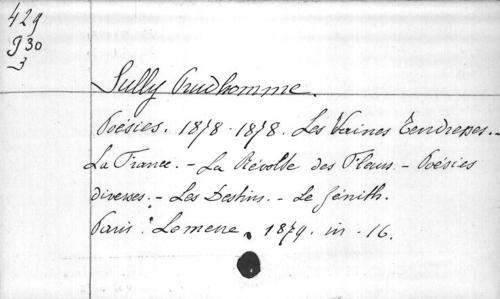 429
930
3
Sully Prudhomme.
Poésies. 1878-1878. Les Vaines Tendresses. -
La France. - La Révolte des Fleurs. - Poésies
diverses. - Les Destins. - Le Zénith.
Paris: Lemerre, 1879. in-16.